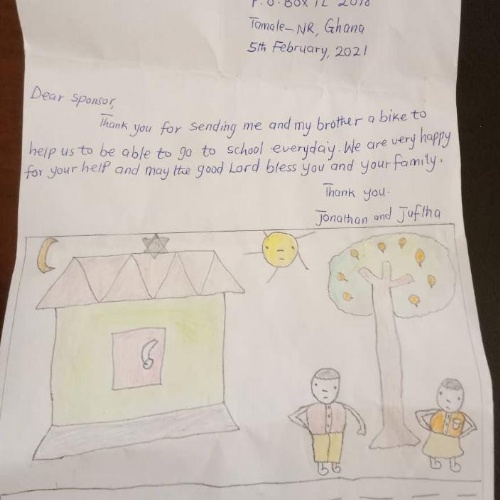 P.O.BOX TL 2018
Tamale-NR, Ghana
5th February, 2021
Dear Sponsor,
Thank you for sending me and my brother a bike to
help us to be able to go to school everyday. We are very happy
for your help and may the good Lord bless you and your family.
Thank you.
Jonathan and Juftha